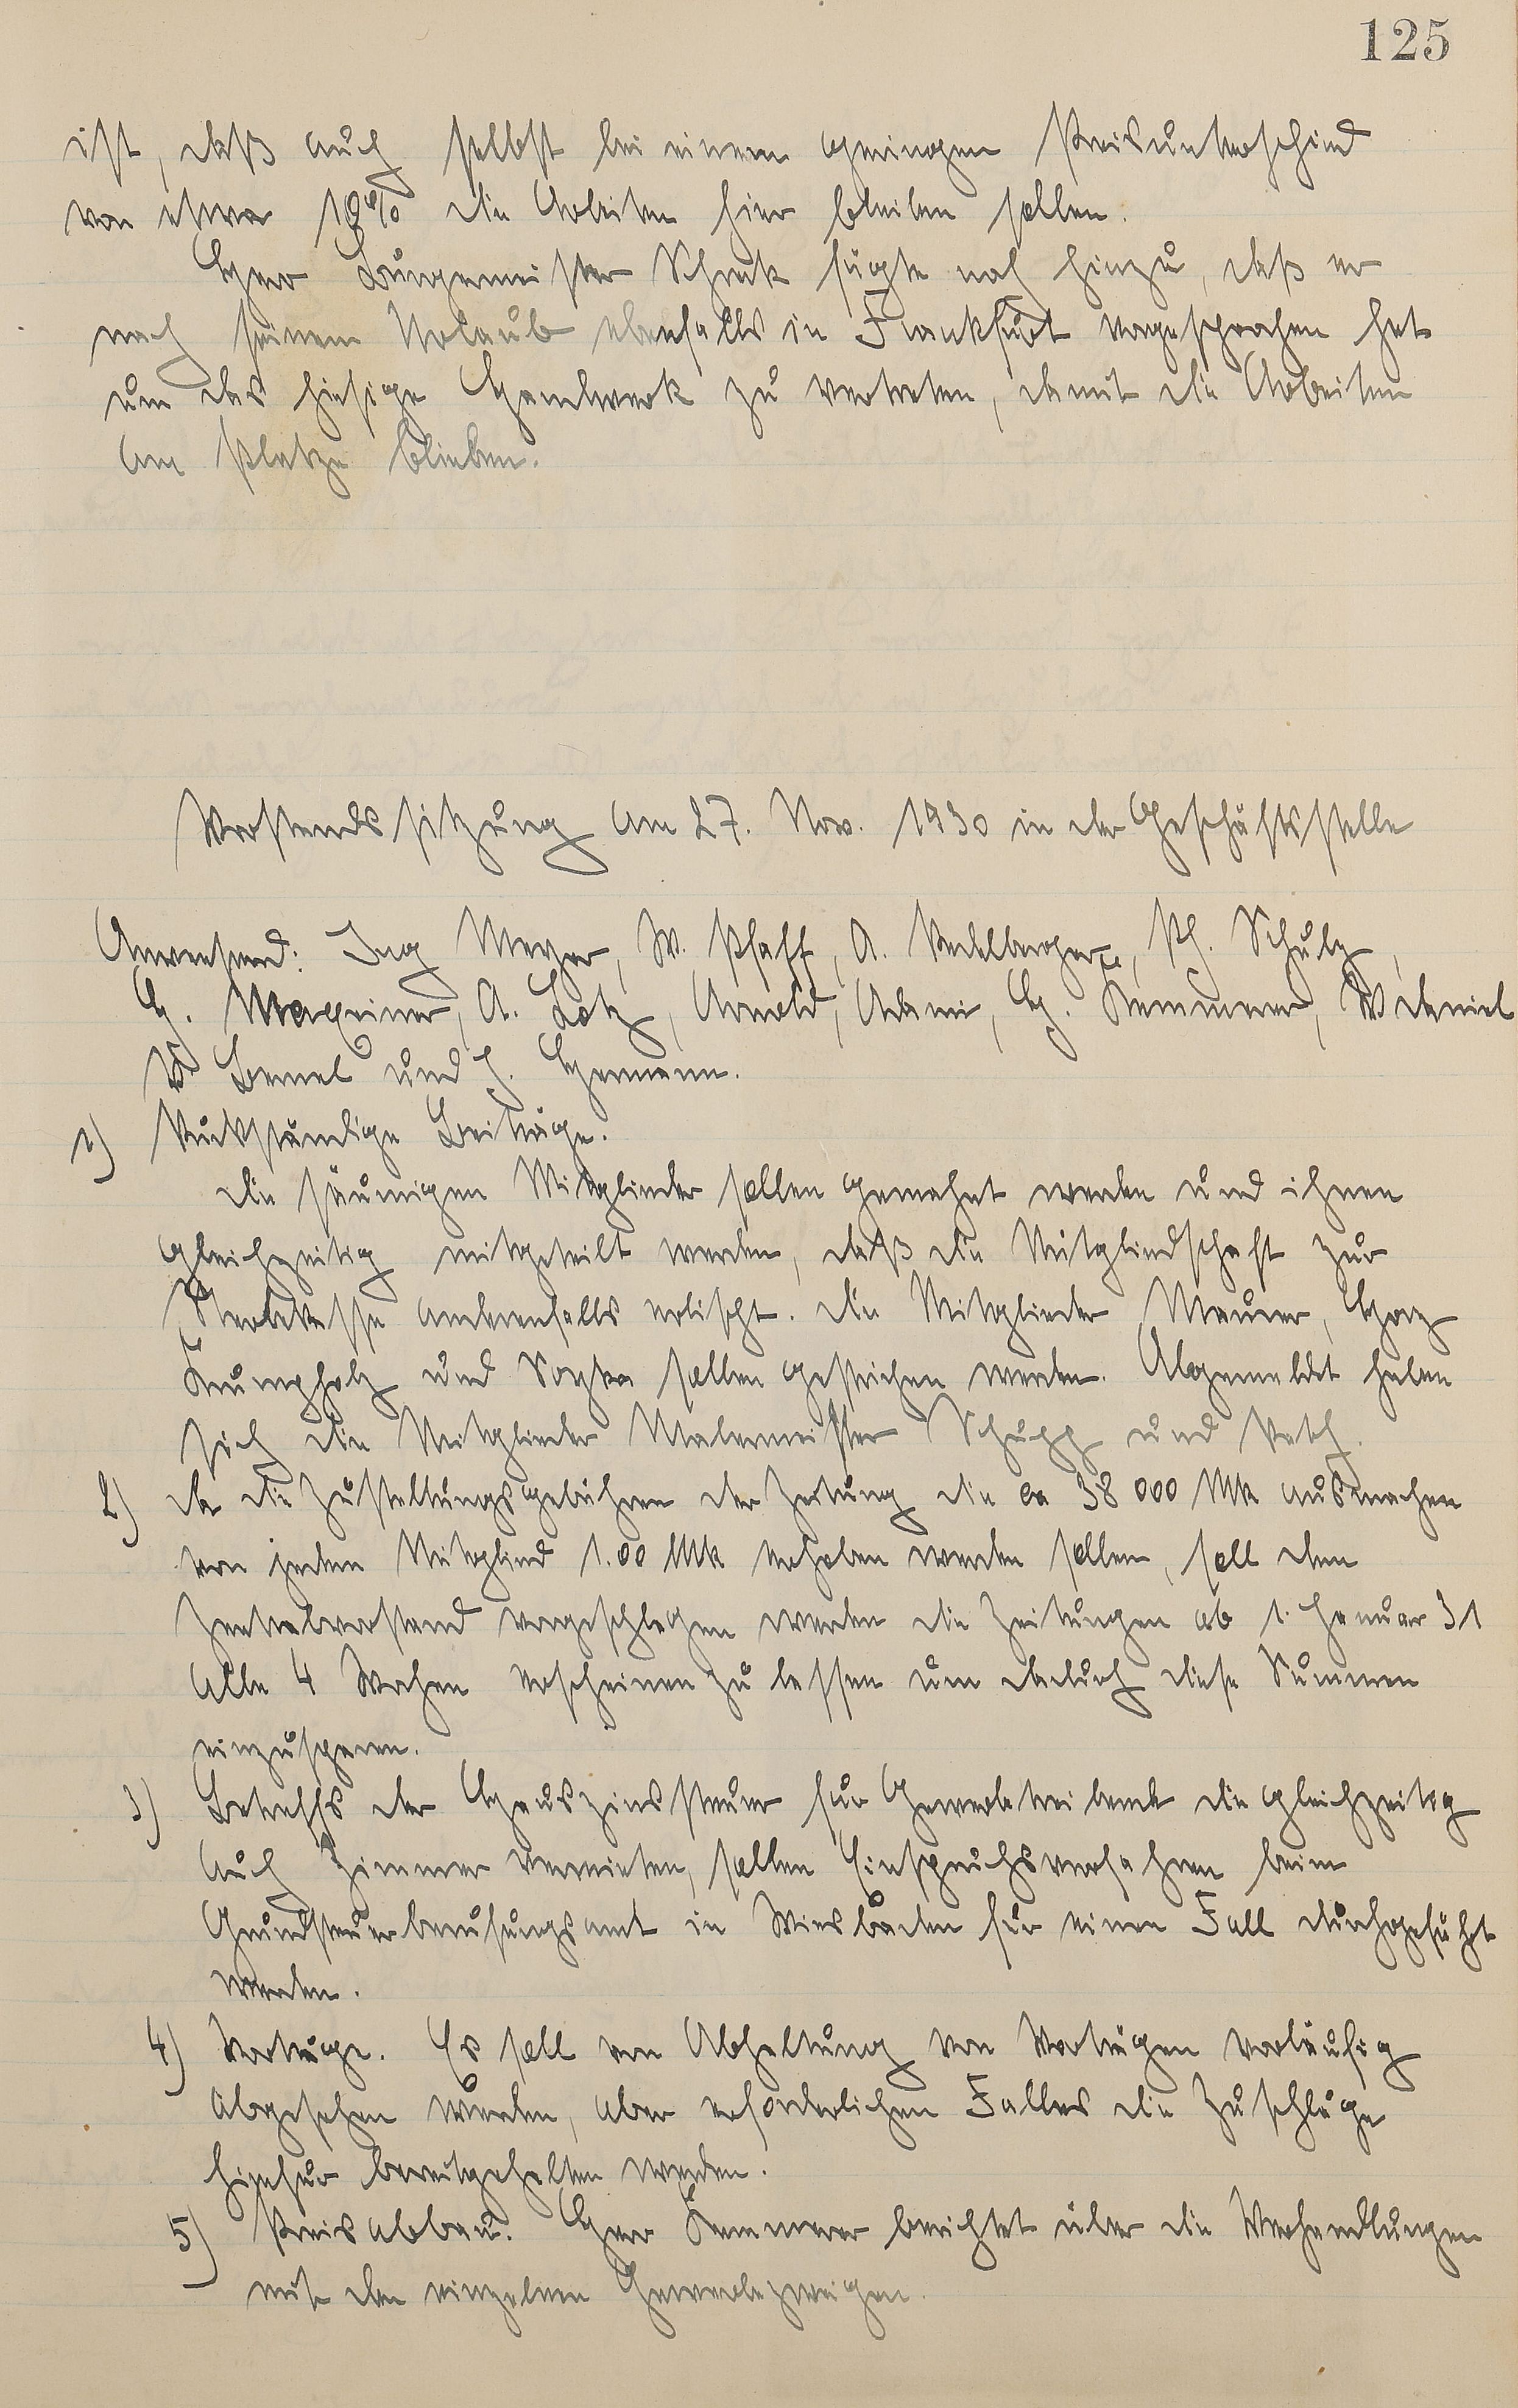 125
ist, daß auch selbst bei einem geringen Preisunterschied
von etwa 10% die Arbeiten hier bleiben sollen.
Herr Bürgermeister Schenk fügte noch hinzu, daß er
nach seinem Urlaub ebenfalls in Frankfurt vorgesprochen hat
um das hiesige Handwerk zu vertreten, damit die Arbeiten
am Platze blieben.
Vorstandssitzung am 27. Nov. 1930 in der Geschäftsstelle
Anwesend: Ing Meyer, W. Pfaff, A. Ph. Schulz,
H. Maxeiner, A. Lotz, Arnold, Adami, H. Kemmerer, W Daniel
W. Bemel und J. Hermann.
1) Rückständige Beiträge.
Die säumigen Mitglieder sollen gemahnt werden und ihnen
gleichzeitig mitgeteilt werden, daß die Mitgliedschaft zur
Sterbekasse andernfalls erlischt. Die Mitglieder Maurer, Horz
Krumpholz und sollen gestrichen werden. Abgemeldet haben
sich die Mitglieder Malermeister Schupp und
2) Da die Zustellungsgebühren der Zeitung die ca 38 000 Mk ausmachen
von jedem Mitglied 1.00 Mk erhoben werden sollen, soll dem
Zentralvorstand vorgeschlagen werden die Zeitungen ab 1. Januar 31
alle 4 Wochen erscheinen zu lassen um dadurch diese Summen
einzusparen.
3) Betreffs der Hauszinssteuer für Gewerbetreibende die gleichzeitig
auch Zimmer vermieten, sollen Einspruchsverfahren beim
Grundsteuerberufungsamt in Wiesbaden für einen Fall durchgeführt
werden.
4) Vorträge. Es soll von Abhaltung von Vorträgen vorläufig
abgesehen werden, aber erforderlichen Falles die Zuschläge
hierfür bereitgehalten werden.
5) Preisabbau. Herr Kemmerer berichtet über die Verhandlungen
mit den einzelnen Gewerbezweigen.